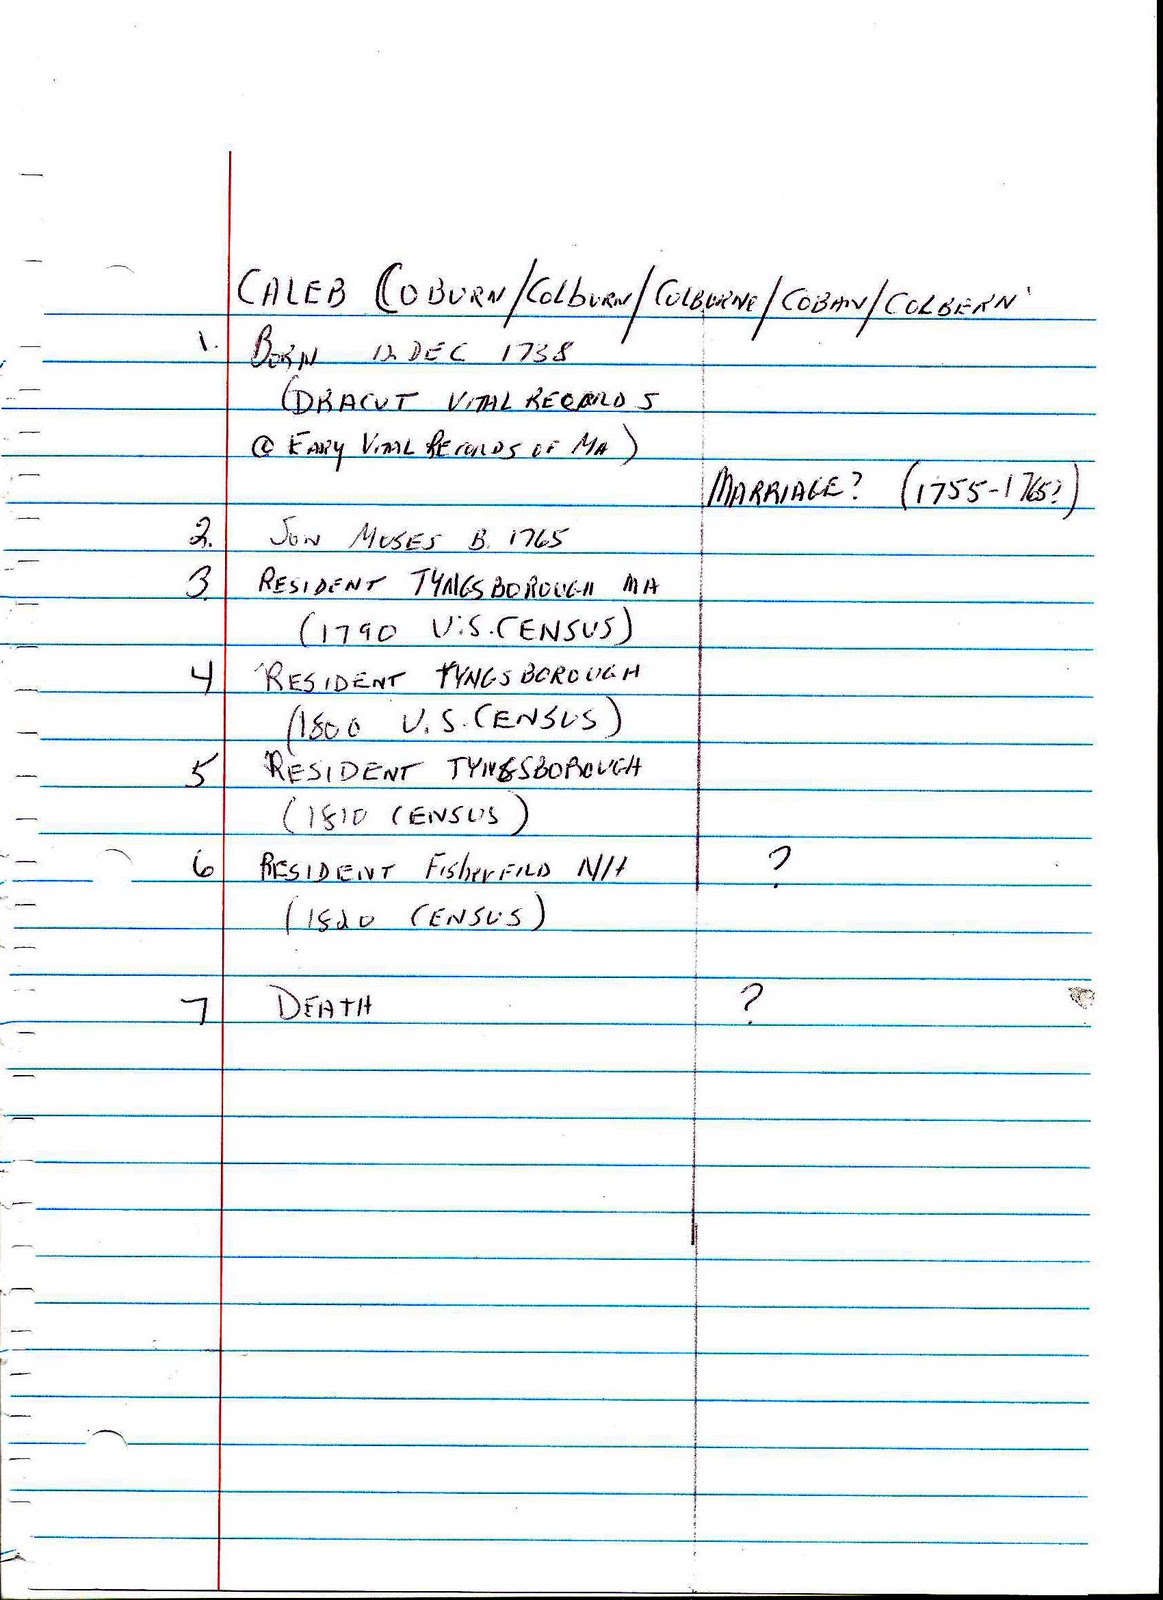 CALEB COBURN/COLBURN/COLBURNE/COBAN/COLBERN
1. BORN 12 DEC 1738
(DRACUT VITAL RECORDS
@ EARY VITAL RECORDS OF MA)
MARRIAGE? (1755-1765?)
2. SON MOSES B. 1765
3 RESIDENT TYNGSBOROUGH MA
(1790 U.S. CENSUS)
4 RESIDENT TYNGSBOROUGH
(1800 U.S. CENSUS)
5 RESIDENT TYNGSBOROUGH
(1810 CENSUS)
6 RESIDENT FisherFILD NH ?
(1820 CENSUS)
7 DEATH ?